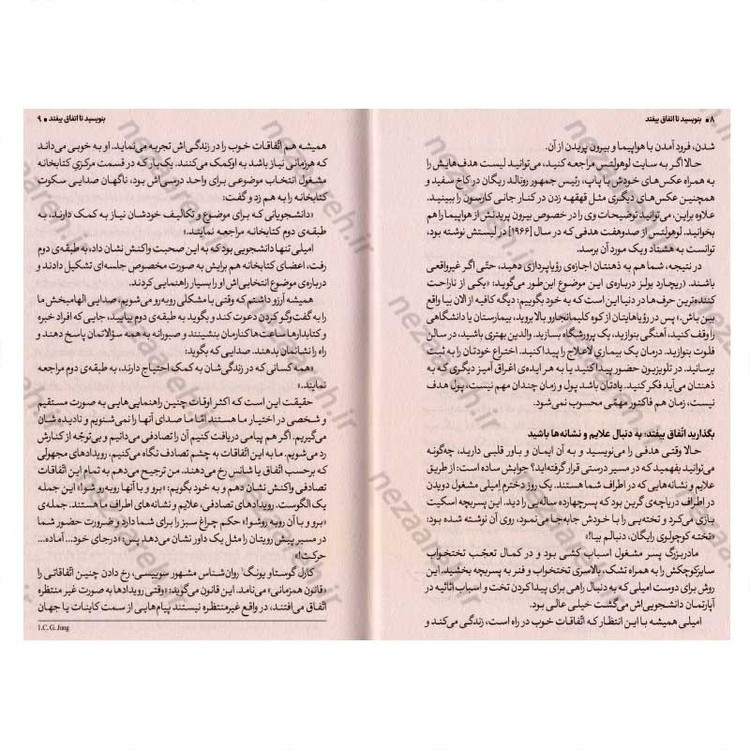 ۸ • بنویسید تا اتفاق بیفتد
شدن، فرود آمدن با هواپیما و بیرون پریدن از آن.
حالا اگر به سایت لوهولتس مراجعه کنید، می‌توانید لیست هدف‌هایش را
به همراه عکس‌های خودش با پاپ، رئیس جمهور رونالد ریگان در کاخ سفید و
همچنین عکس‌های دیگری مثل قهقهه زدن در کنار جانی کارسون را ببینید.
علاوه براین، می‌توانید توضیحات وی را در خصوص بیرون پریدنش از هواپیما را هم
بخوانید. لوهولتس از صدوهفت هدفی که در سال [۱۹۶۶] در لیستش نوشته بود،
توانست به هشتاد ویک مورد آن برسد.
در نتیجه، شما هم به ذهنتان اجازه‌ی رؤیاپردازی دهید، حتّی اگر غیرواقعی
باشند. (ریچارد بولز درباره‌ی این موضوع این‌طور می‌گوید: «یکی از ناراحت
کننده‌ترین حرف‌ها در دنیا این است که به خود بگوییم: دیگه کافیه از الان بیا واقع
بین باش.» پس در رؤیاهایتان از کوه کلیمانجارو بالا بروید، بیمارستان یا دانشگاهی
را وقف کنید، آهنگی بنوازید، یک پرورشگاه بسازید. والدین بهتری باشید، در سالن
فلوت بنوازید. درمان یک بیماری لاعلاج را پیدا کنید. اختراع خودتان را به ثبت
برسانید. در تلویزیون حضور پیدا کنید یا به هر ایده‌ی اغراق آمیز دیگری که به
ذهنتان می‌آید فکر کنید. یادتان باشد پول و زمان چندان مهم نیست، پول هدف
نیست، زمان هم فاکتور مهمّی محسوب نمی‌شود.
بگذارید اتّفاق بیفتد: به دنبال علایم و نشانه‌ها باشید
حالا وقتی هدفی را می‌نویسید و به آن ایمان و باور قلبی دارید، چه‌گونه
می‌توانید بفهمید که در مسیر درستی قرار گرفته‌اید؟ جوابش ساده است: از طریق
علایم و نشانه‌هایی که در اطراف شما هستند. یک روز دخترم اِمیلی مشغول دویدن
در اطراف دریاچه‌ی گرین بود که پسرچهارده ساله‌یی را دید. این پسربچه اسکیت
بازی می‌کرد و تخته‌یی را با خودش جابه‌جا می‌نمود، روی آن نوشته شده بود:
«تخته کوچولوی رایگان، دنبالم بیا!»
مادربزرگ پسر مشغول اسباب کشی بود و در کمال تعجّب تختخواب
سایزکوچکش را به همراه تشک، بالاسری تختخواب و فنر به پسربچه بخشید. این
روش برای دوست امیلی که به دنبال راهی برای پیدا کردن تخت و اسباب اثاثیه در
آپارتمان دانشجویی‌اش می‌گشت خیلی عالی بود.
امیلی همیشه با این انتظار که اتّفاقات خوب در راه است، زندگی می‌کند و
بنویسید تا اتفاق بیفتد • ۹
همیشه هم اتّفاقات خوب را در زندگی‌اش تجربه می‌نماید. او به خوبی می‌داند
که هرزمانی نیاز باشد به اوکمک می‌کنند. یک‌بار که در قسمت مرکزیِ کتابخانه
مشغول انتخاب موضوعی برای واحد درسی‌اش بود، ناگهان صدایی سکوت
کتابخانه را به هم زد و گفت:
«دانشجویانی که برای موضوع و تکالیف خودشان نیاز به کمک دارند، به
طبقه‌ی دوم کتابخانه مراجعه نمایند.»
امیلی تنها دانشجویی بود که به این صحبت واکنش نشان داد، به‌طبقه‌ی دوم
رفت، اعضای کتابخانه هم برایش به صورت مخصوص جلسه‌ای تشکیل دادند و
درباره‌ی موضوع انتخابی‌اش او را بسیار راهنمایی کردند.
همیشه آرزو داشتم که وقتی با مشکلی روبه‌رو می‌شویم، صدایی الهام‌بخش ما
را به گفت‌وگو کردن دعوت کند و بگوید به طبقه‌ی دوم بیایید، جایی که افراد خبره
و کتابدارها ساعت‌ها کنارمان بنشینند و صبورانه به همه سؤالاتمان پاسخ دهند و
راه را نشانمان بدهند. صدایی که بگوید:
«همه کسانی که در زندگی‌شان به کمک احتیاج دارند، به طبقه‌ی دوم مراجعه
نمایند.»
حقیقت این است که اکثر اوقات چنین راهنمایی‌هایی به صورت مستقیم
و شخصی در اختیار ما هستند امّا ما صدای آنها را نمی‌شنویم و نادیده شان
می‌گیریم. اگر هم پیامی دریافت کنیم آن را تصادفی می‌دانیم و بی‌توجّه از کنارش
رد می‌شویم. ما به این اتّفاقات به چشم تصادف نگاه می‌کنیم، رویدادهای مجهولی
که برحسب اتّفاق یا شانس رخ می‌دهند. من ترجیح می‌دهم به تمام این اتّفاقات
تصادفی واکنش نشان دهم و به خود بگویم: «برو و با آنها روبه رو شو!» این جمله
یک الگوست. رویدادهای تصادفی، علایم و نشانه‌های اطراف ما هستند. جمله‌ی
«برو و با آن روبه رو شو!» حکم چراغ سبز را برای شما دارد و ضرورت حضور شما
در مسیر پیش رویتان را مثل یک داور نشان می‌دهد پس: «درجای خود... آماده...
حرکت!»
کارل گوستاو یونگ¹ روان‌شناس مشهور سوییسی، رخ دادن چنین اتّفاقاتی را
«قانون همزمانی» می‌نامد. این قانون می‌گوید: «وقتی رویدادها به صورت غیر منتظره
اتّفاق می‌افتند، در واقع غیرمنتظره نیستند پیام‌هایی از سمت کاینات یا جهان
1. C. G. Jung
nezaareh.ir